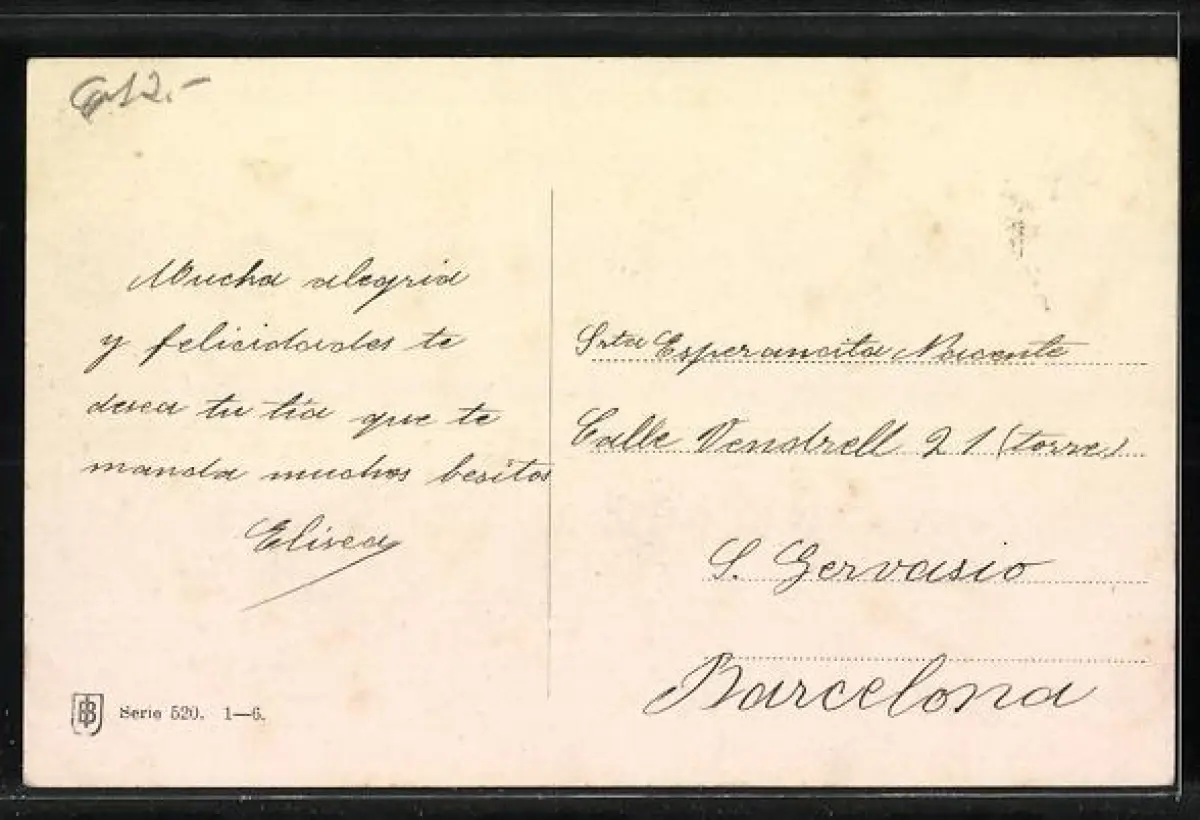 12.-
Mucha alegria
y felicidades te
desea tu tía que te
manda muchos besitos
Elisea
Serie 520. 1—6.
Srta Esperancita
Calle Vendrell 21 (torre)
S. Gervasio
Barcelona